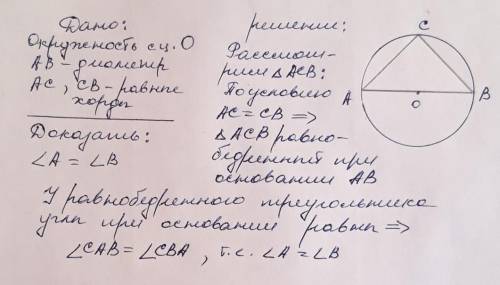 Дано:
Окружность с ц. О
АВ - диаметр
АС, СВ - равные
хорды
Доказать:
∠А = ∠В
решение:
Рассмот-
рим △АСВ:
По условию
АС = СВ =>
△АСВ равно-
бедренный при
основании АВ
У равнобедренного треугольника
углы при основании равны =>
∠САВ = ∠СВА, т.е. ∠А = ∠В
C
A
B
O